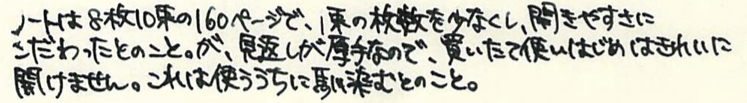 ノートは8枚10束の160ページで、1束の枚数を少なくし、開きやすさに
こだわったとのこと。が、見返しが厚手なので、買いたて使いはじめはきれいに
開けません。これは使ううちに馴染むとのこと。